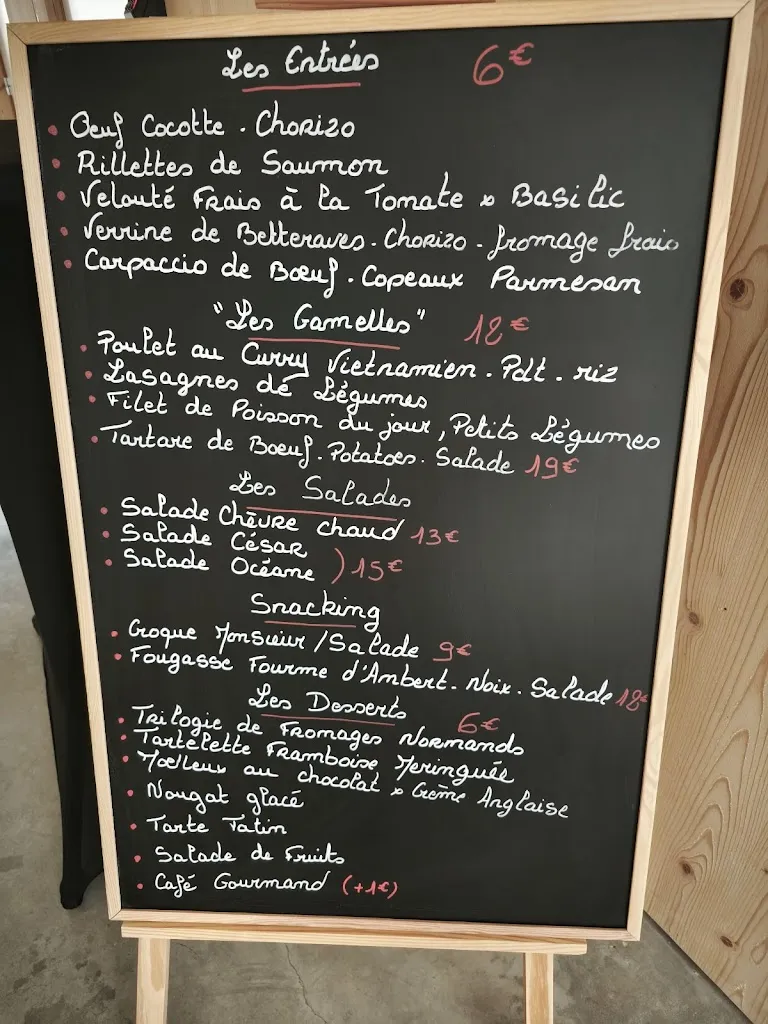 Les Entrées 6€
• Oeuf Cocotte . Chorizo
• Rillettes de Saumon
• Velouté Frais à la Tomate & Basilic
• Verrine de Betteraves . Chorizo - fromage frais
• Carpaccio de Bœuf . Copeaux Parmesan
"Les Gamelles" 12€
• Poulet au Curry Vietnamien . Pdt . riz
• Lasagnes de Légumes
• Filet de Poisson du jour, Petits Légumes
• Tartare de Boeuf . Potatoes . Salade 19€
Les Salades
• Salade Chèvre chaud 13€
• Salade César
• Salade Océane ) 15€
Snacking
• Croque Monsieur / Salade 9€
• Fougasse Fourme d'Ambert . Noix . Salade 12€
Les Desserts 6€
• Trilogie de Fromages Normands
• Tartelette Framboise Meringuée
• Moelleux au chocolat & Crème Anglaise
• Nougat glacé
• Tarte Tatin
• Salade de Fruits
• Café Gourmand (+1€)